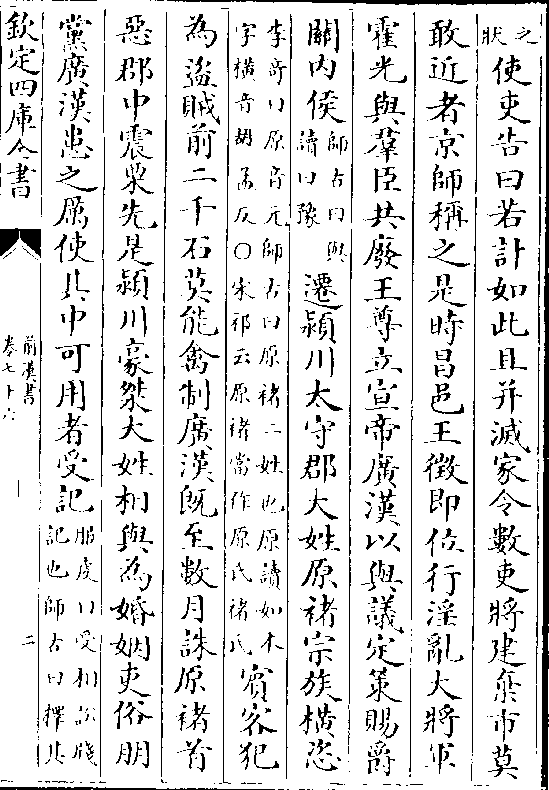 之狀使吏告曰若計如此且并滅家令數吏將建棄市莫
敢近者京師稱之是時昌邑王徵即位行淫亂大將軍
霍光與羣臣共廢王尊立宣帝廣漢以與議定策賜爵
關内侯師古曰與讀曰豫遷潁川太守郡大姓原禇宗族橫恣
李竒曰原音元師古曰原禇二姓也原讀如本字橫音胡孟反○宋祁云原禇當作原氏禇氏賓客犯
為盜賊前二千石莫能禽制廣漢既至數月誅原禇首
惡郡中震栗先是潁川豪桀大姓相與為婚姻吏俗朋
黨廣漢患之厲使其中可用者受記服虔曰受相訟牋記也師古曰擇其
欽定四庫全書
前漢書
卷七十六
二